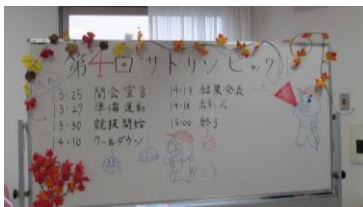 第4回サトリンピック
13:25 開会宣言
13:27 準備運動
13:30 競技開始
14:10 クールダウン
14:13 結果発表
14:18 表彰式
15:00 終了